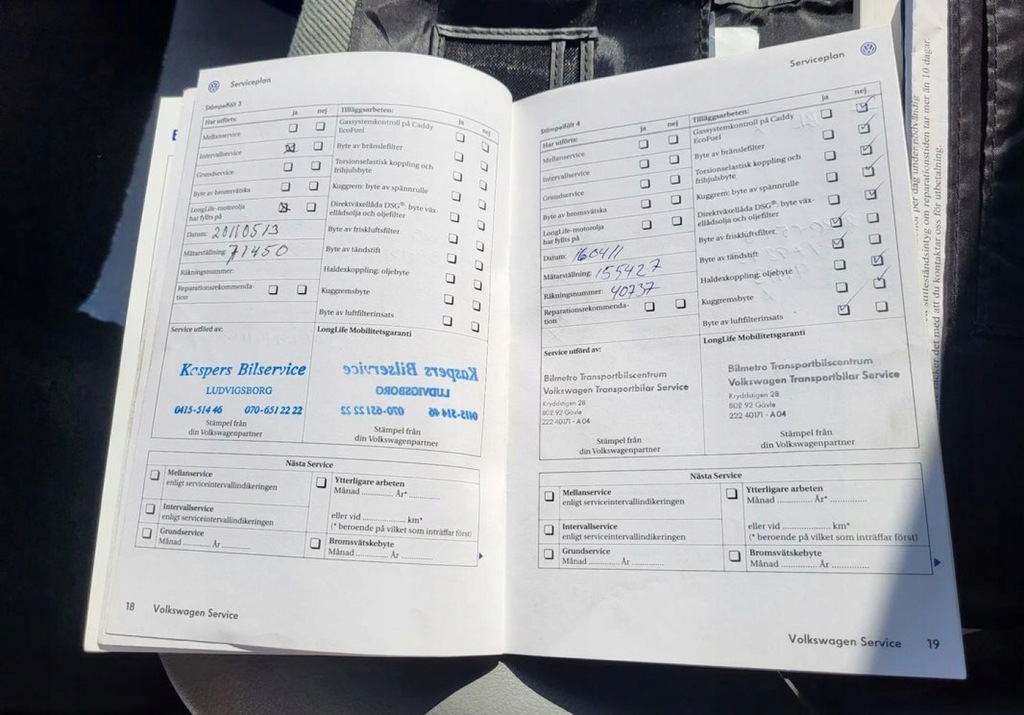 Serviceplan
Stämpelfält 3
Har utförts: ja nej
Mellanservice
Intervallservice
Grundservice
Byte av bromsvätska
LongLife-motorolja
har fyllts på
Datum: 20110513
Mätarställning: 71450
Räkningsnummer:
Reparationsrekommenda-
tion
Tilläggsarbeten: ja nej
Gassystemkontroll på Caddy
EcoFuel
Byte av bränslefilter
Torsionselastisk koppling och
frihjulsbyte
Kuggrem: byte av spännrulle
Direktväxellåda DSG®: byte väx-
ellådsolja och oljefilter
Byte av friskluftsfilter
Byte av tändstift
Haldexkoppling: oljebyte
Kuggremsbyte
Byte av luftfilterinsats
Service utförd av:
Kaspers Bilservice
LUDVIGSBORG
0415-514 46 070-651 22 22
Stämpel från
din Volkswagenpartner
LongLife Mobilitetsgaranti
Kaspers Bilservice
LUDVIGSBORG
0415-514 46 070-651 22 22
Stämpel från
din Volkswagenpartner
Nästa Service
Mellanservice
enligt serviceintervallindikeringen
Intervallservice
enligt serviceintervallindikeringen
Grundservice
Månad .......... År ..........
Ytterligare arbeten
Månad .......... År* ..........
eller vid ............ km*
(* beroende på vilket som inträffar först)
Bromsvätskebyte
Månad .......... År ..........
18 Volkswagen Service
Serviceplan
Stämpelfält 4
Har utförts: ja nej
Mellanservice
Intervallservice
Grundservice
Byte av bromsvätska
LongLife-motorolja
har fyllts på
Datum: 160411
Mätarställning: 155427
Räkningsnummer: 40737
Reparationsrekommenda-
tion
Tilläggsarbeten: ja nej
Gassystemkontroll på Caddy
EcoFuel
Byte av bränslefilter
Torsionselastisk koppling och
frihjulsbyte
Kuggrem: byte av spännrulle
Direktväxellåda DSG®: byte väx-
ellådsolja och oljefilter
Byte av friskluftsfilter
Byte av tändstift
Haldexkoppling: oljebyte
Kuggremsbyte
Byte av luftfilterinsats
Service utförd av:
Bilmetro Transportbilscentrum
Volkswagen Transportbilar Service
Kryddstigen 28
802 92 Gävle
222 40171 - A04
Stämpel från
din Volkswagenpartner
LongLife Mobilitetsgaranti
Bilmetro Transportbilscentrum
Volkswagen Transportbilar Service
Kryddstigen 28
802 92 Gävle
222 40171 - A04
Stämpel från
din Volkswagenpartner
Nästa Service
Mellanservice
enligt serviceintervallindikeringen
Intervallservice
enligt serviceintervallindikeringen
Grundservice
Månad .......... År ..........
Ytterligare arbeten
Månad .......... År* ..........
eller vid ............ km*
(* beroende på vilket som inträffar först)
Bromsvätskebyte
Månad .......... År ..........
Volkswagen Service 19
per dag under nödvändig
stilleståndsintyg om reparationstiden tar mer än 10 dagar.
det med att du kontaktar oss för utbetalning.